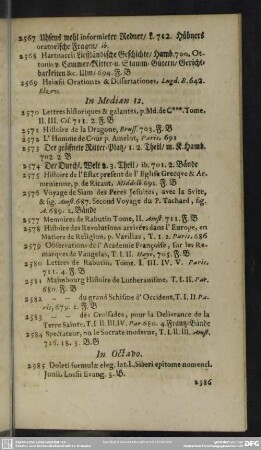 2567 Uhsens wohl informirter Redner/ k. 712. Hübners
oratorische Fragen/ ib.
2568 Hartnacci Liefländische Geschichte/ Hamb. 700. Ot-
tonis v. Cammer-Ritter- u. Stamm-Gütern/ Gericht-
barkeiten &c. Ulm/ 694. F. B
2569 Heinsii Orationes & Dissertationes. Lugd. B. 642.
Elzev.
In Median 12.
2570 Lettres historiques & galantes, p. Md. de C***. Tome.
II. III. Col. 711. 2. F. B
2571 Histoire de la Dragone, Bruss. 703. F. B
2572 L'Homme de Cour p. Amelot, Paris. 691
2573 Der geöfnete Ritter-Platz/ 1. 2. Theil/ m. K. Hamb.
702. 2 B
2574 Der Durchl. Welt 2. 3. Theil/ ib. 701. 2. Bände
2575 Histoire de l'Estat present de l'Eglise Grecque & Ar-
menienne, p. de Ricaut. Middelb. 691. F. B
2576 Voyage de Siam des Peres Jesuites, avec la Svite,
& fig. Amst. 687. Second Voyage du P. Tachard, fig.
A. 689. 2. Bände
2577 Memoires de Rabutin Tome, II. Amst. 711. F. B
2578 Histoire des Revolutions arrivées dans l'Europe, en
matiere de Religion, p. Varillas, T. 1. 2. Paris, 686
2579 Observations de l'Academie Françoise, sur les Re-
marques de Vaugelas, T. I. II. Haye, 705. F. B.
2580 Lettres de Rabutin. Tome. I. III. IV. V. Paris,
711. 4. F. B
2581 Maimbourg Histoire de Lutheranisme. T. I. II Par.
680. F. B
2582 -- -- du grand Schisme d'Occident, T. I. II Pa-
ris, 679. 1. F. B
2583 -- -- des Croisades, pour la Deliverance de la
Terre Sainte. T. I II. III. IV. Par 680. 4. Frantz-Bände
2584 Spectateur, ou le Socrate moderne, T. I. II. III. Amst.
716. 18. 3. B. G
In Octavo.
2585 Doleti formulæ eleg. lat. l. Siberi epitome nomencl.
Junii. Lossii Evang. 3. B.
2586